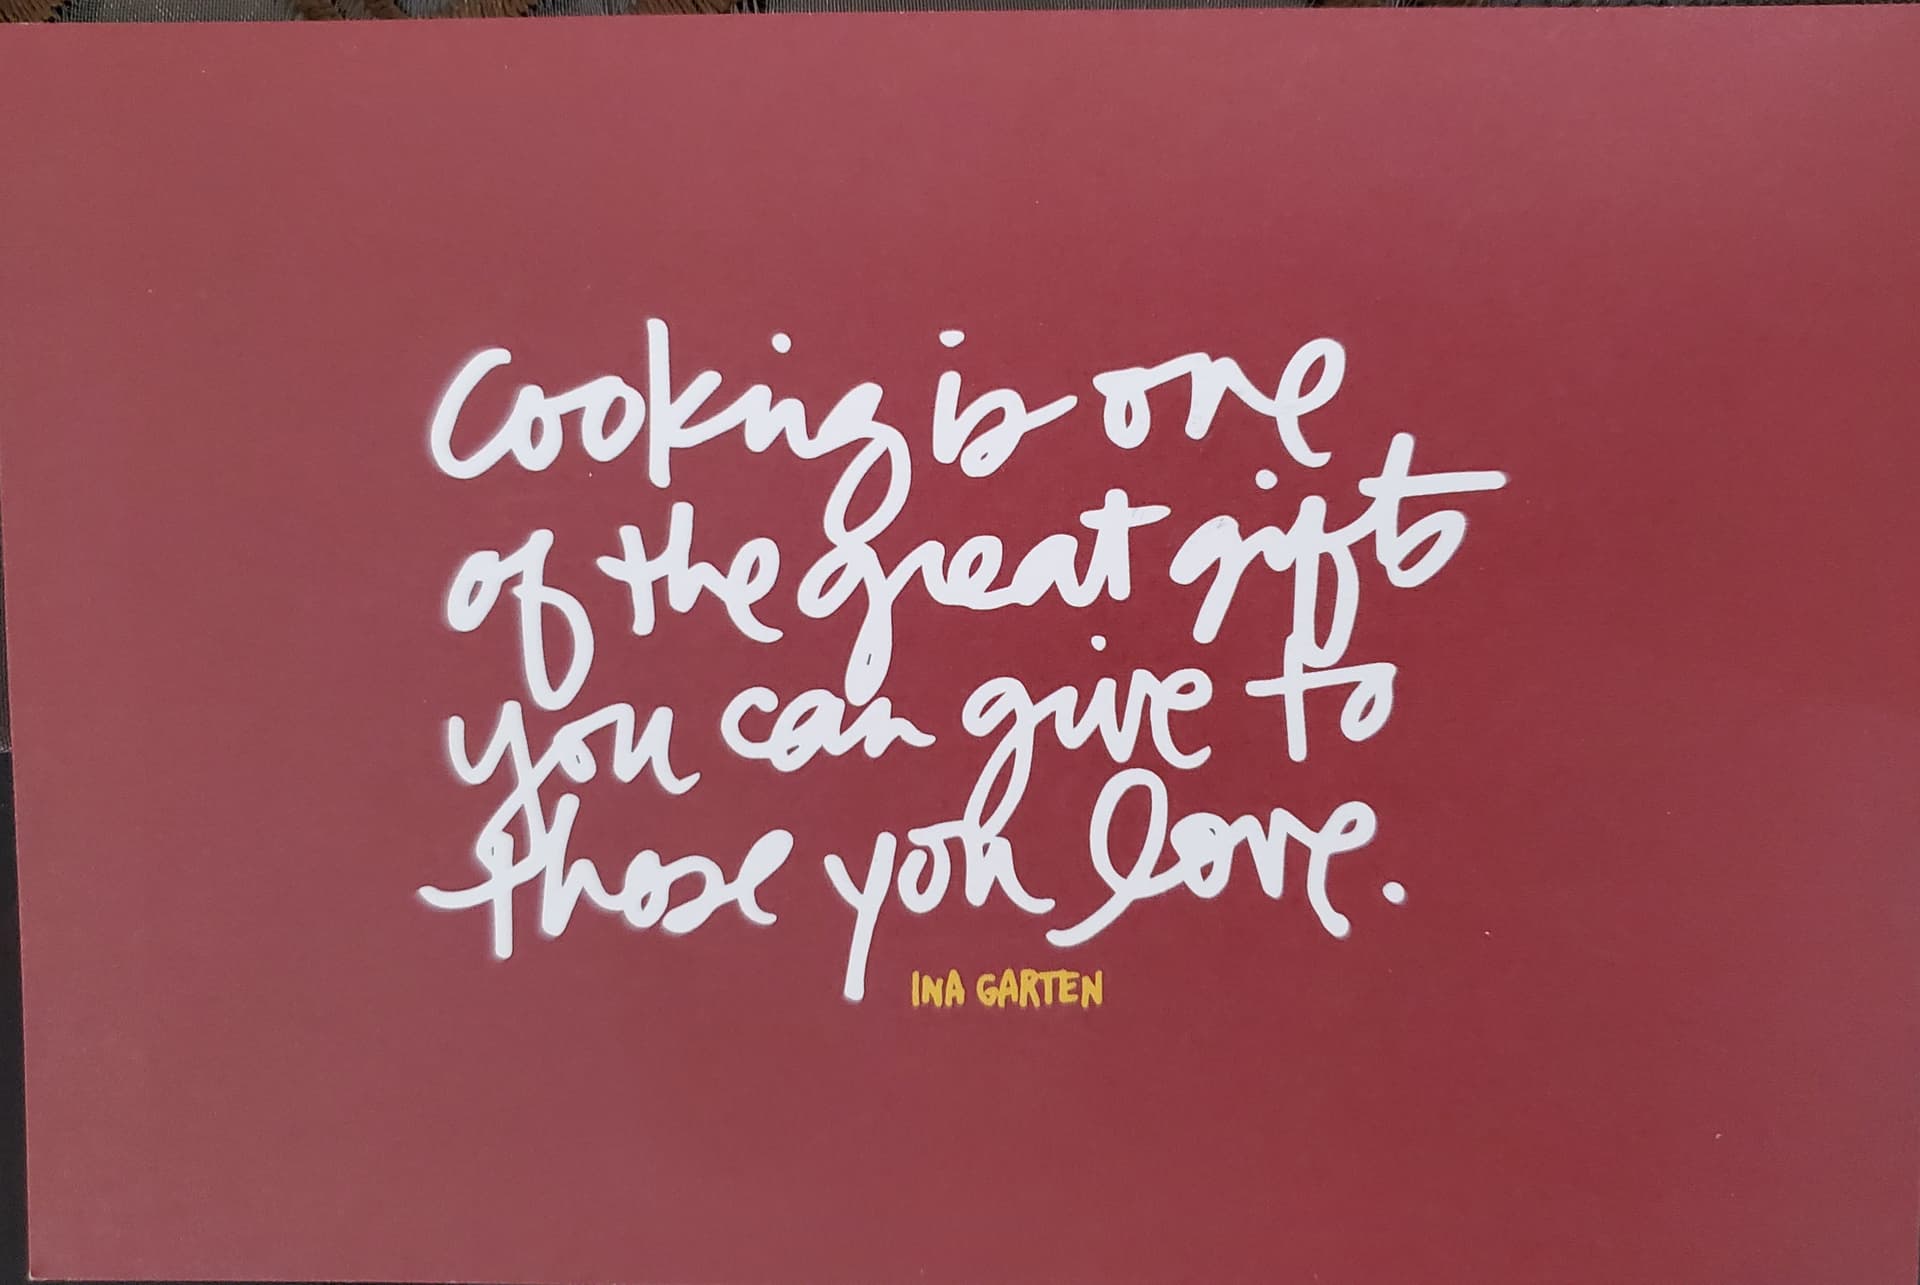 Cooking is one
of the great gifts
you can give to
those you love.
INA GARTEN